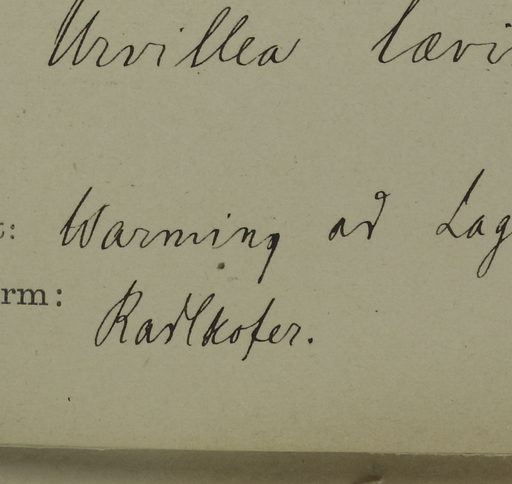 Urvillea lævi
t: Warming ad Lag
rm: Radlkofer.